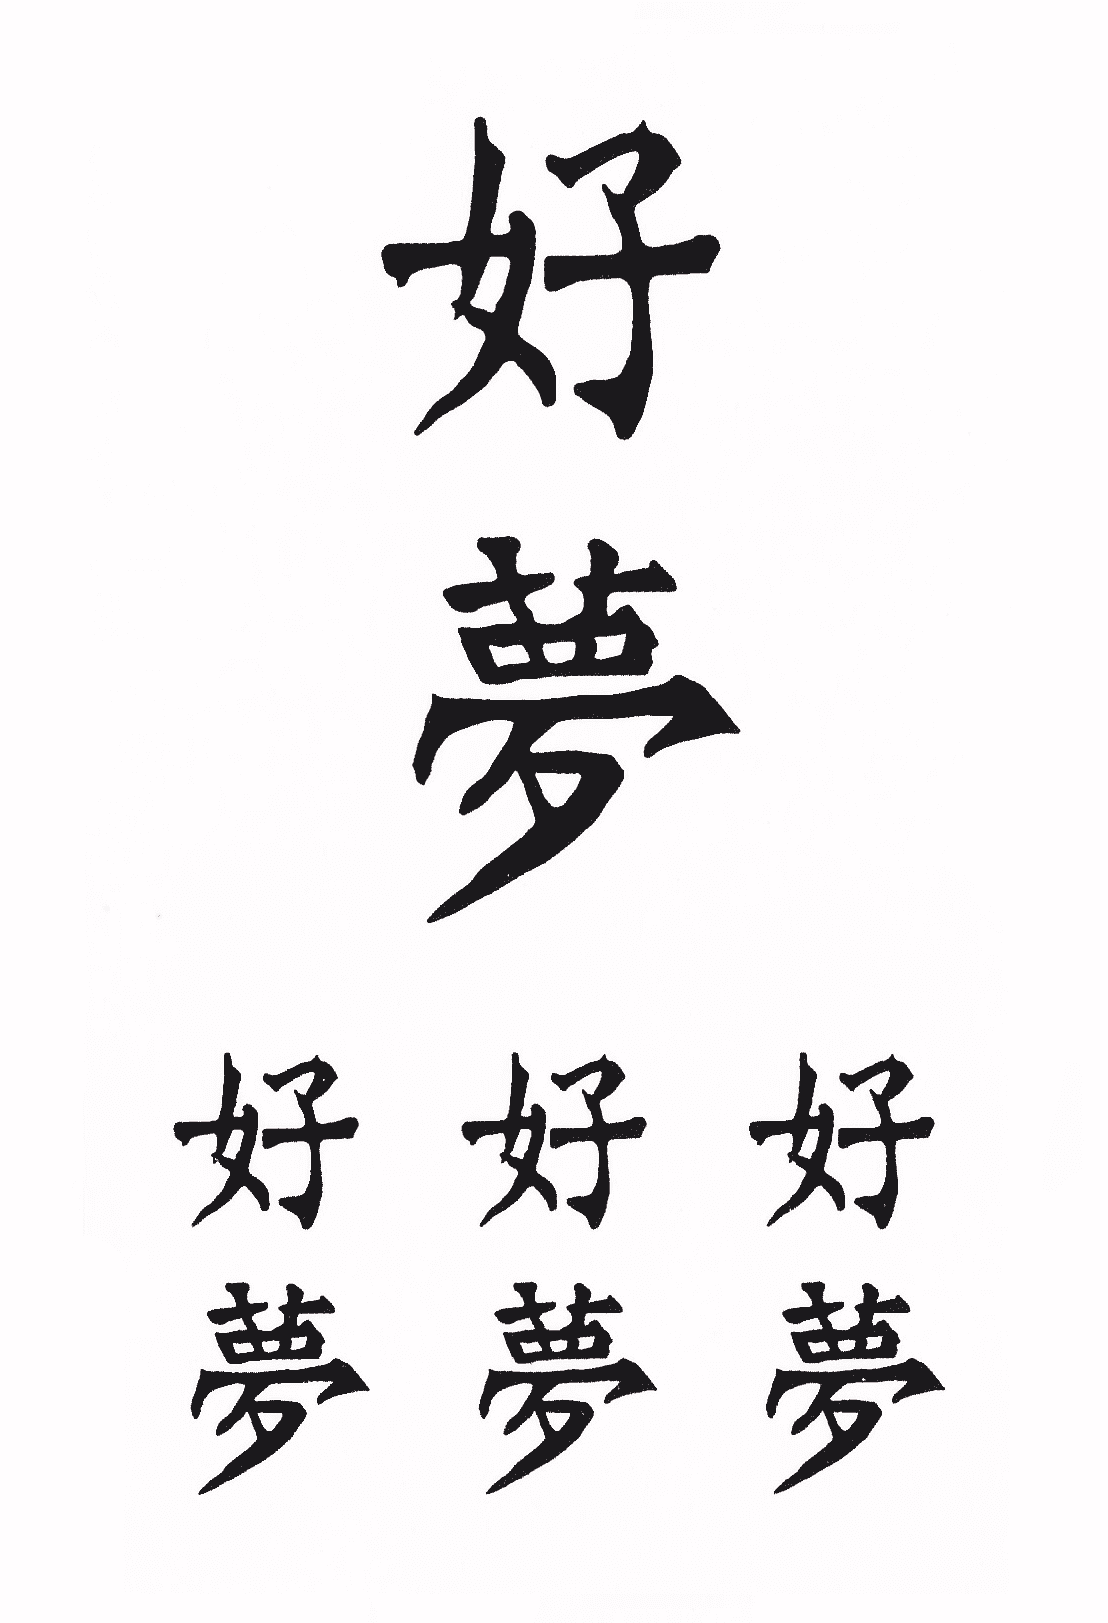 好夢
好夢
好夢
好夢